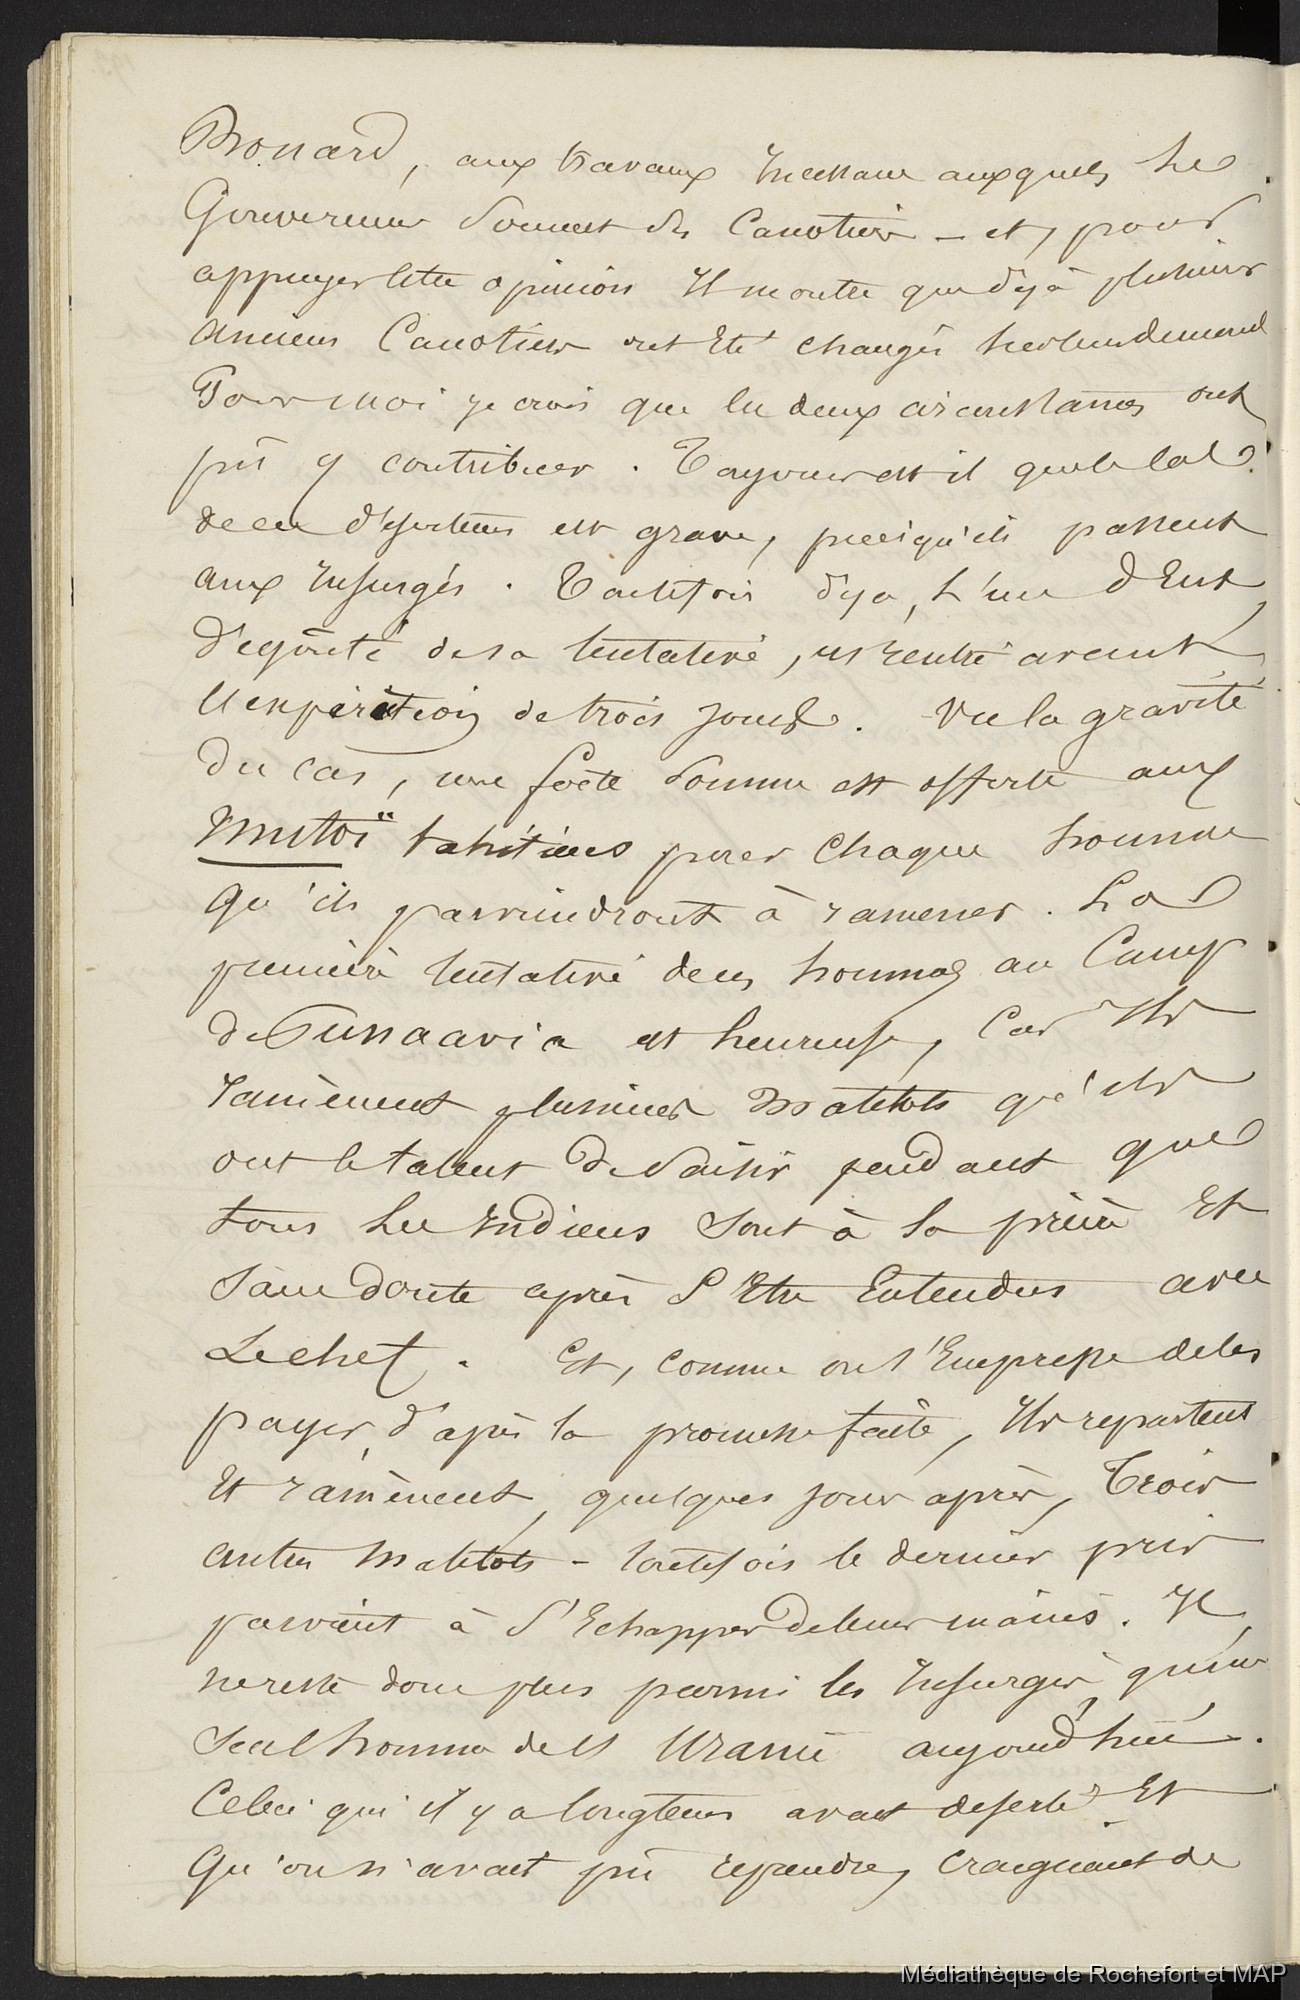 Bonard, aux travaux incessans auxquels le
Gouverneur soumet ses Canotiers – et, pour
appuyer cette opinion Il montre que dejà plusieurs
anciens Canotiers ont Eté changés sur leur demande
Pour moi je crois que les deux circonstances ont
pû y contribuer. Toujours est il que le cas
de ces déserteurs est grave, puisqu'ils passent
aux Insurgés. Toutefois déja, L'un d'Eux,
dégoûté de sa tentative, est rentré avant
l'expiration de trois jours. Vu la gravité
du cas, une forte somme est offerte aux
Mutoï tahitiens pour chaque homme
qu'ils parviendront à ramener. La
première tentative de ces hommes au Camp
de Punaavia est heureuse, Car Ils
ramènent plusieurs Matelots qu'ils
ont le talent de saisir pendant que
tous les Indiens sont à la prière Et
sans doute après s'Etre Entendus avec
Le chef. Et, comme on s'Empresse de les
payer, d'après la promesse faite, Ils repartent
Et ramènent, quelques jours après, Trois
autres Matelots – toutefois le dernier pris
parvient à s'Echapper de leurs mains. Il
ne reste donc plus parmi les Insurgés qu'un
seul homme de l'Uranie aujourd'hui.
Celui qui il y a longtems avait deserté Et
Qu'on n'avait pû reprendre, craignant de
Médiathèque de Rochefort et MAP